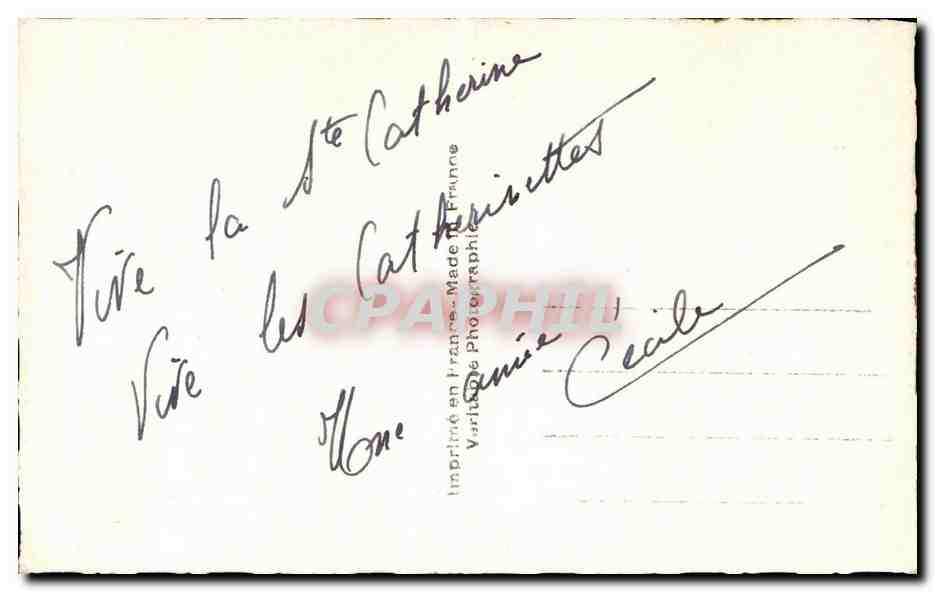 Vive la Ste Catherine
Vive les Catherinettes
Une amie
Cecile
Imprimé en France - Made in France
Véritable Photographie
CPAPHIL